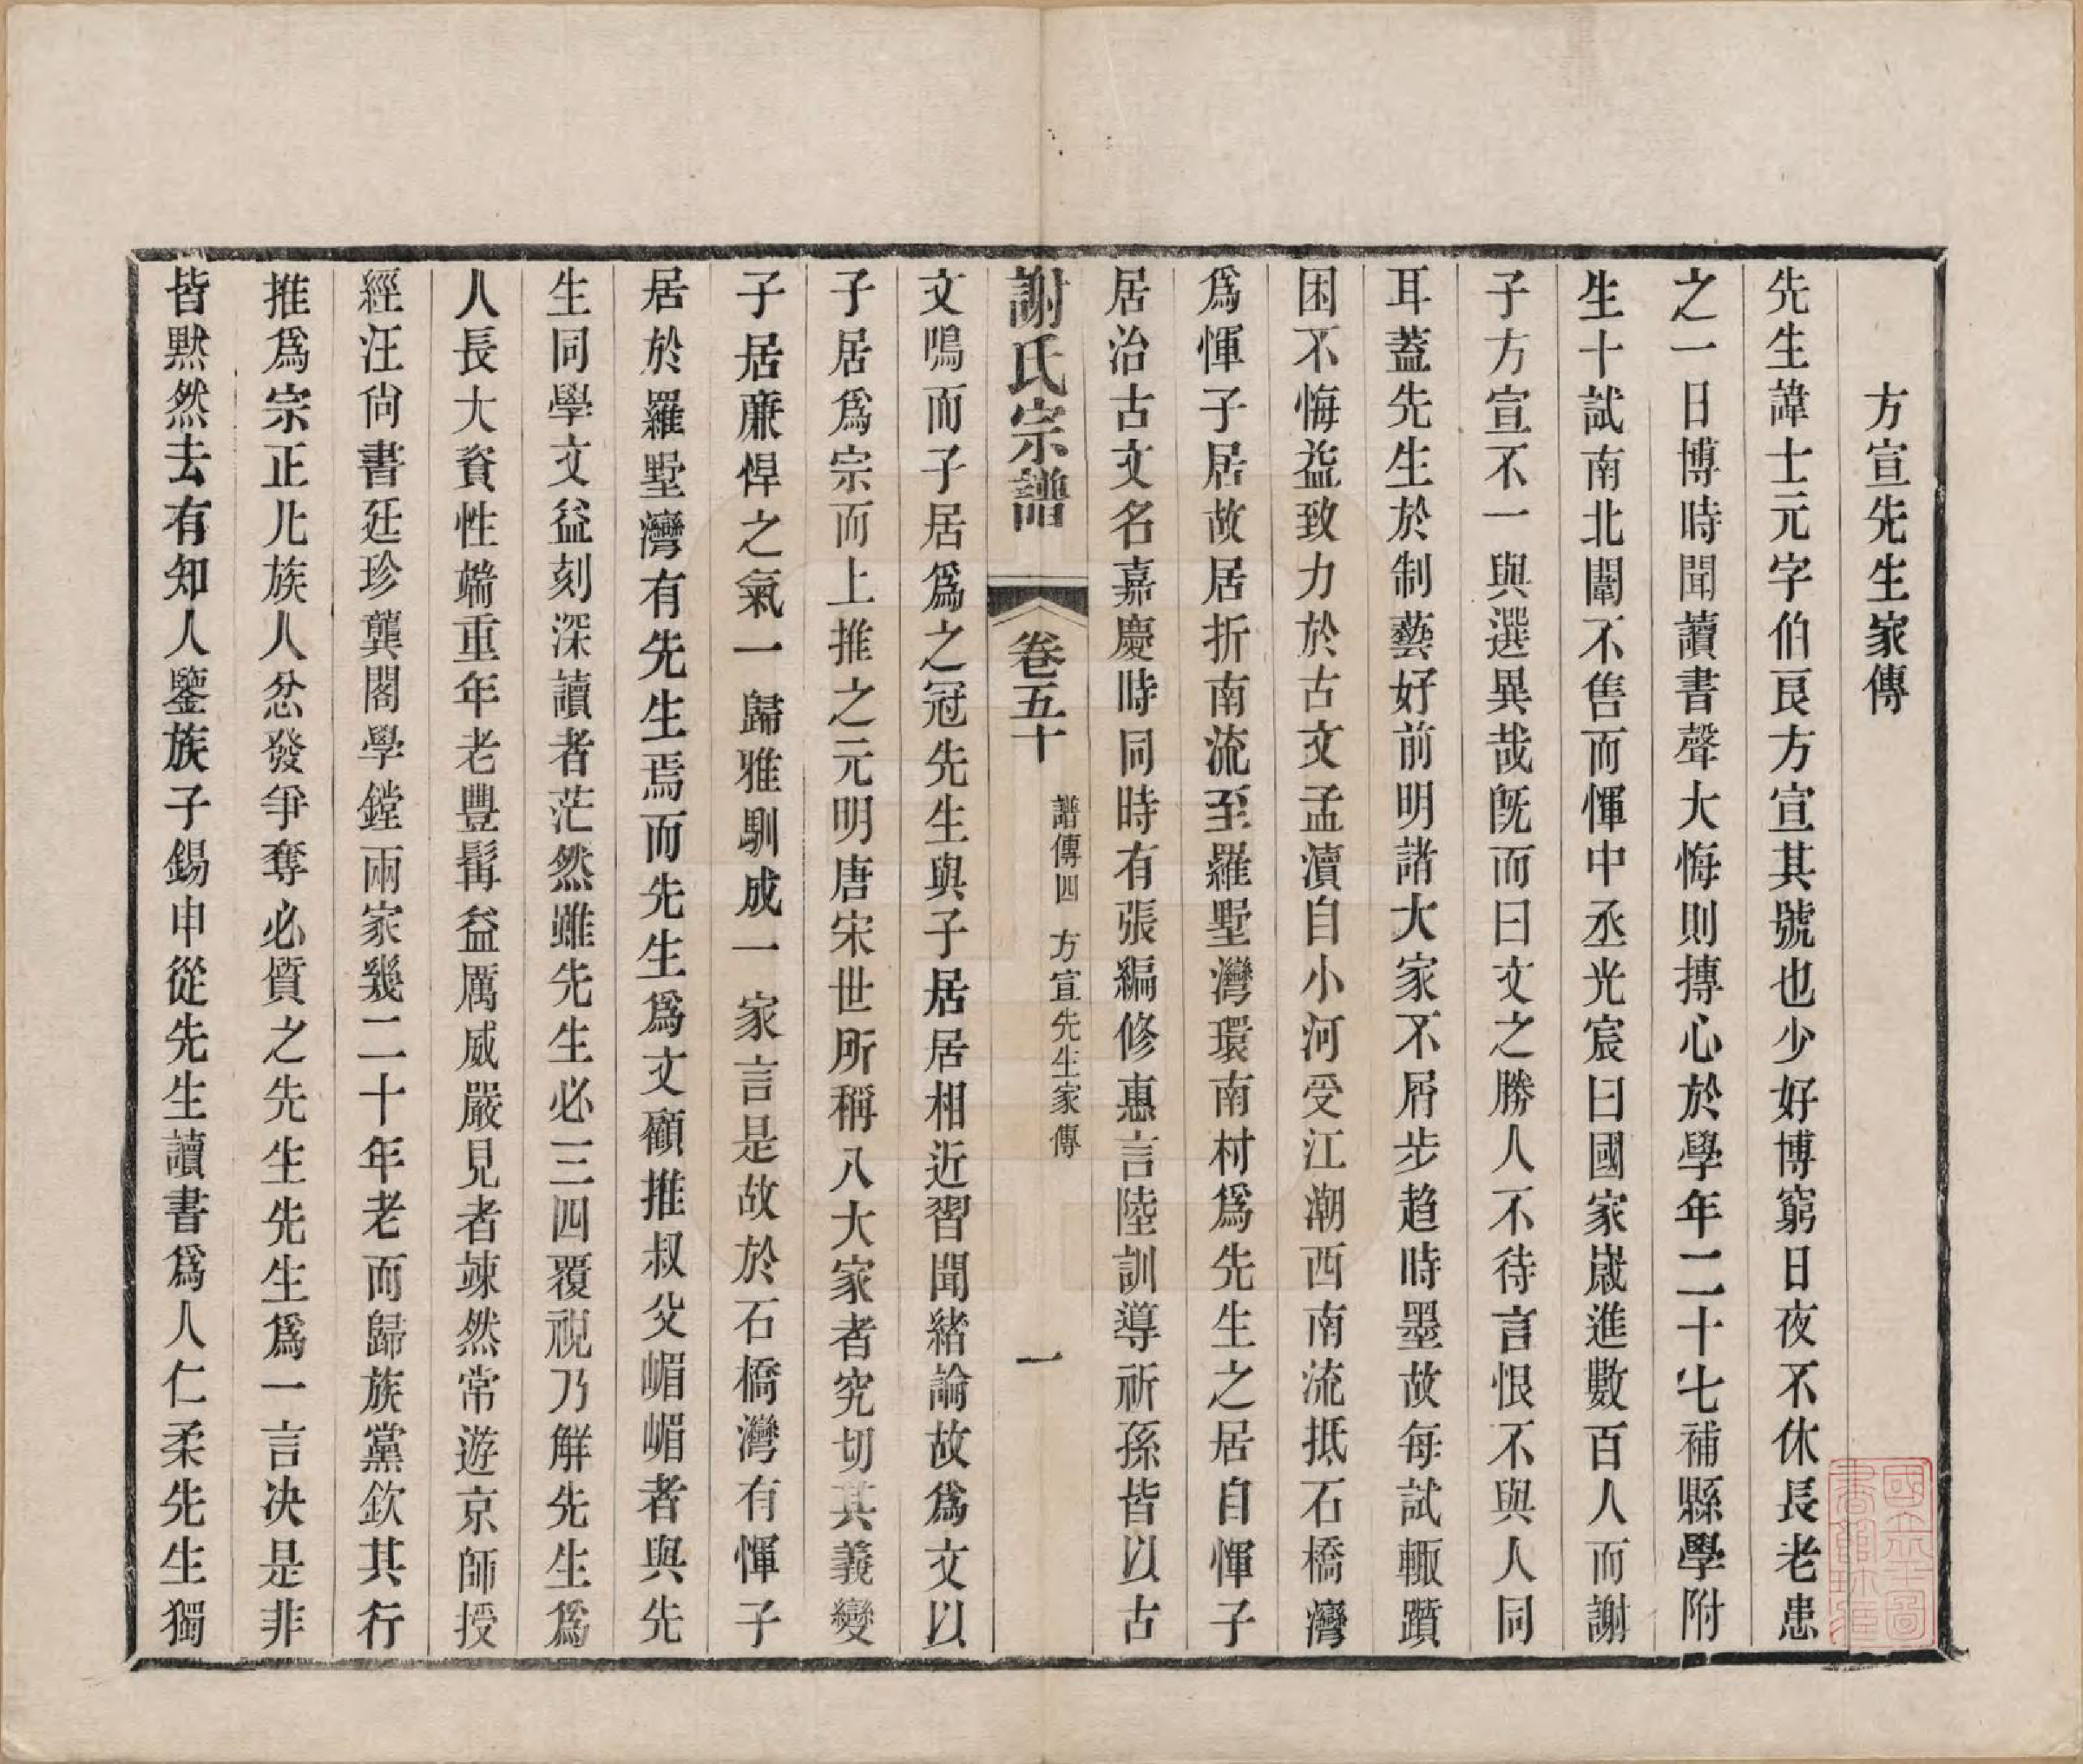 方宣先生家傳
先生諱士元字伯良方宣其號也少好博窮日夜不休長老患
之一日博時聞讀書聲大悔則摶心於學年二十七補縣學附
生十試南北闈不售而惲中丞光宸曰國家歲進數百人而謝
子方宣不一與選異哉旣而曰文之勝人不待言恨不與人同
耳蓋先生於制藝好前明諸大家不屑步趨時墨故每試輒躓
困不悔益致力於古文孟瀆自小河受江潮西南流抵石橋灣
爲惲子居故居折南流至羅墅灣環南村爲先生之居自惲子
居治古文名嘉慶時同時有張編修惠言陸訓導祈孫皆以古
謝氏宗譜 卷五十 譜傳四 方宣先生家傳 一
文鳴而子居爲之冠先生與子居居相近習聞緒論故爲文以
子居爲宗而上推之元明唐宋世所稱八大家者究切其義變
子居廉悍之氣一歸雅馴成一家言是故於石橋灣有惲子
居於羅墅灣有先生焉而先生爲文顧推叔父嵋嵋者與先
生同學文益刻深讀者茫然雖先生必三四覆視乃解先生爲
人長大資性端重年老豐髯益厲威嚴見者竦然常遊京師授
經汪尙書廷珍龔閣學鏜兩家幾二十年老而歸族黨欽其行
推爲宗正凡族人忿發爭奪必質之先生先生爲一言决是非
皆默然去有知人鑒族子錫申從先生讀書爲人仁柔先生獨